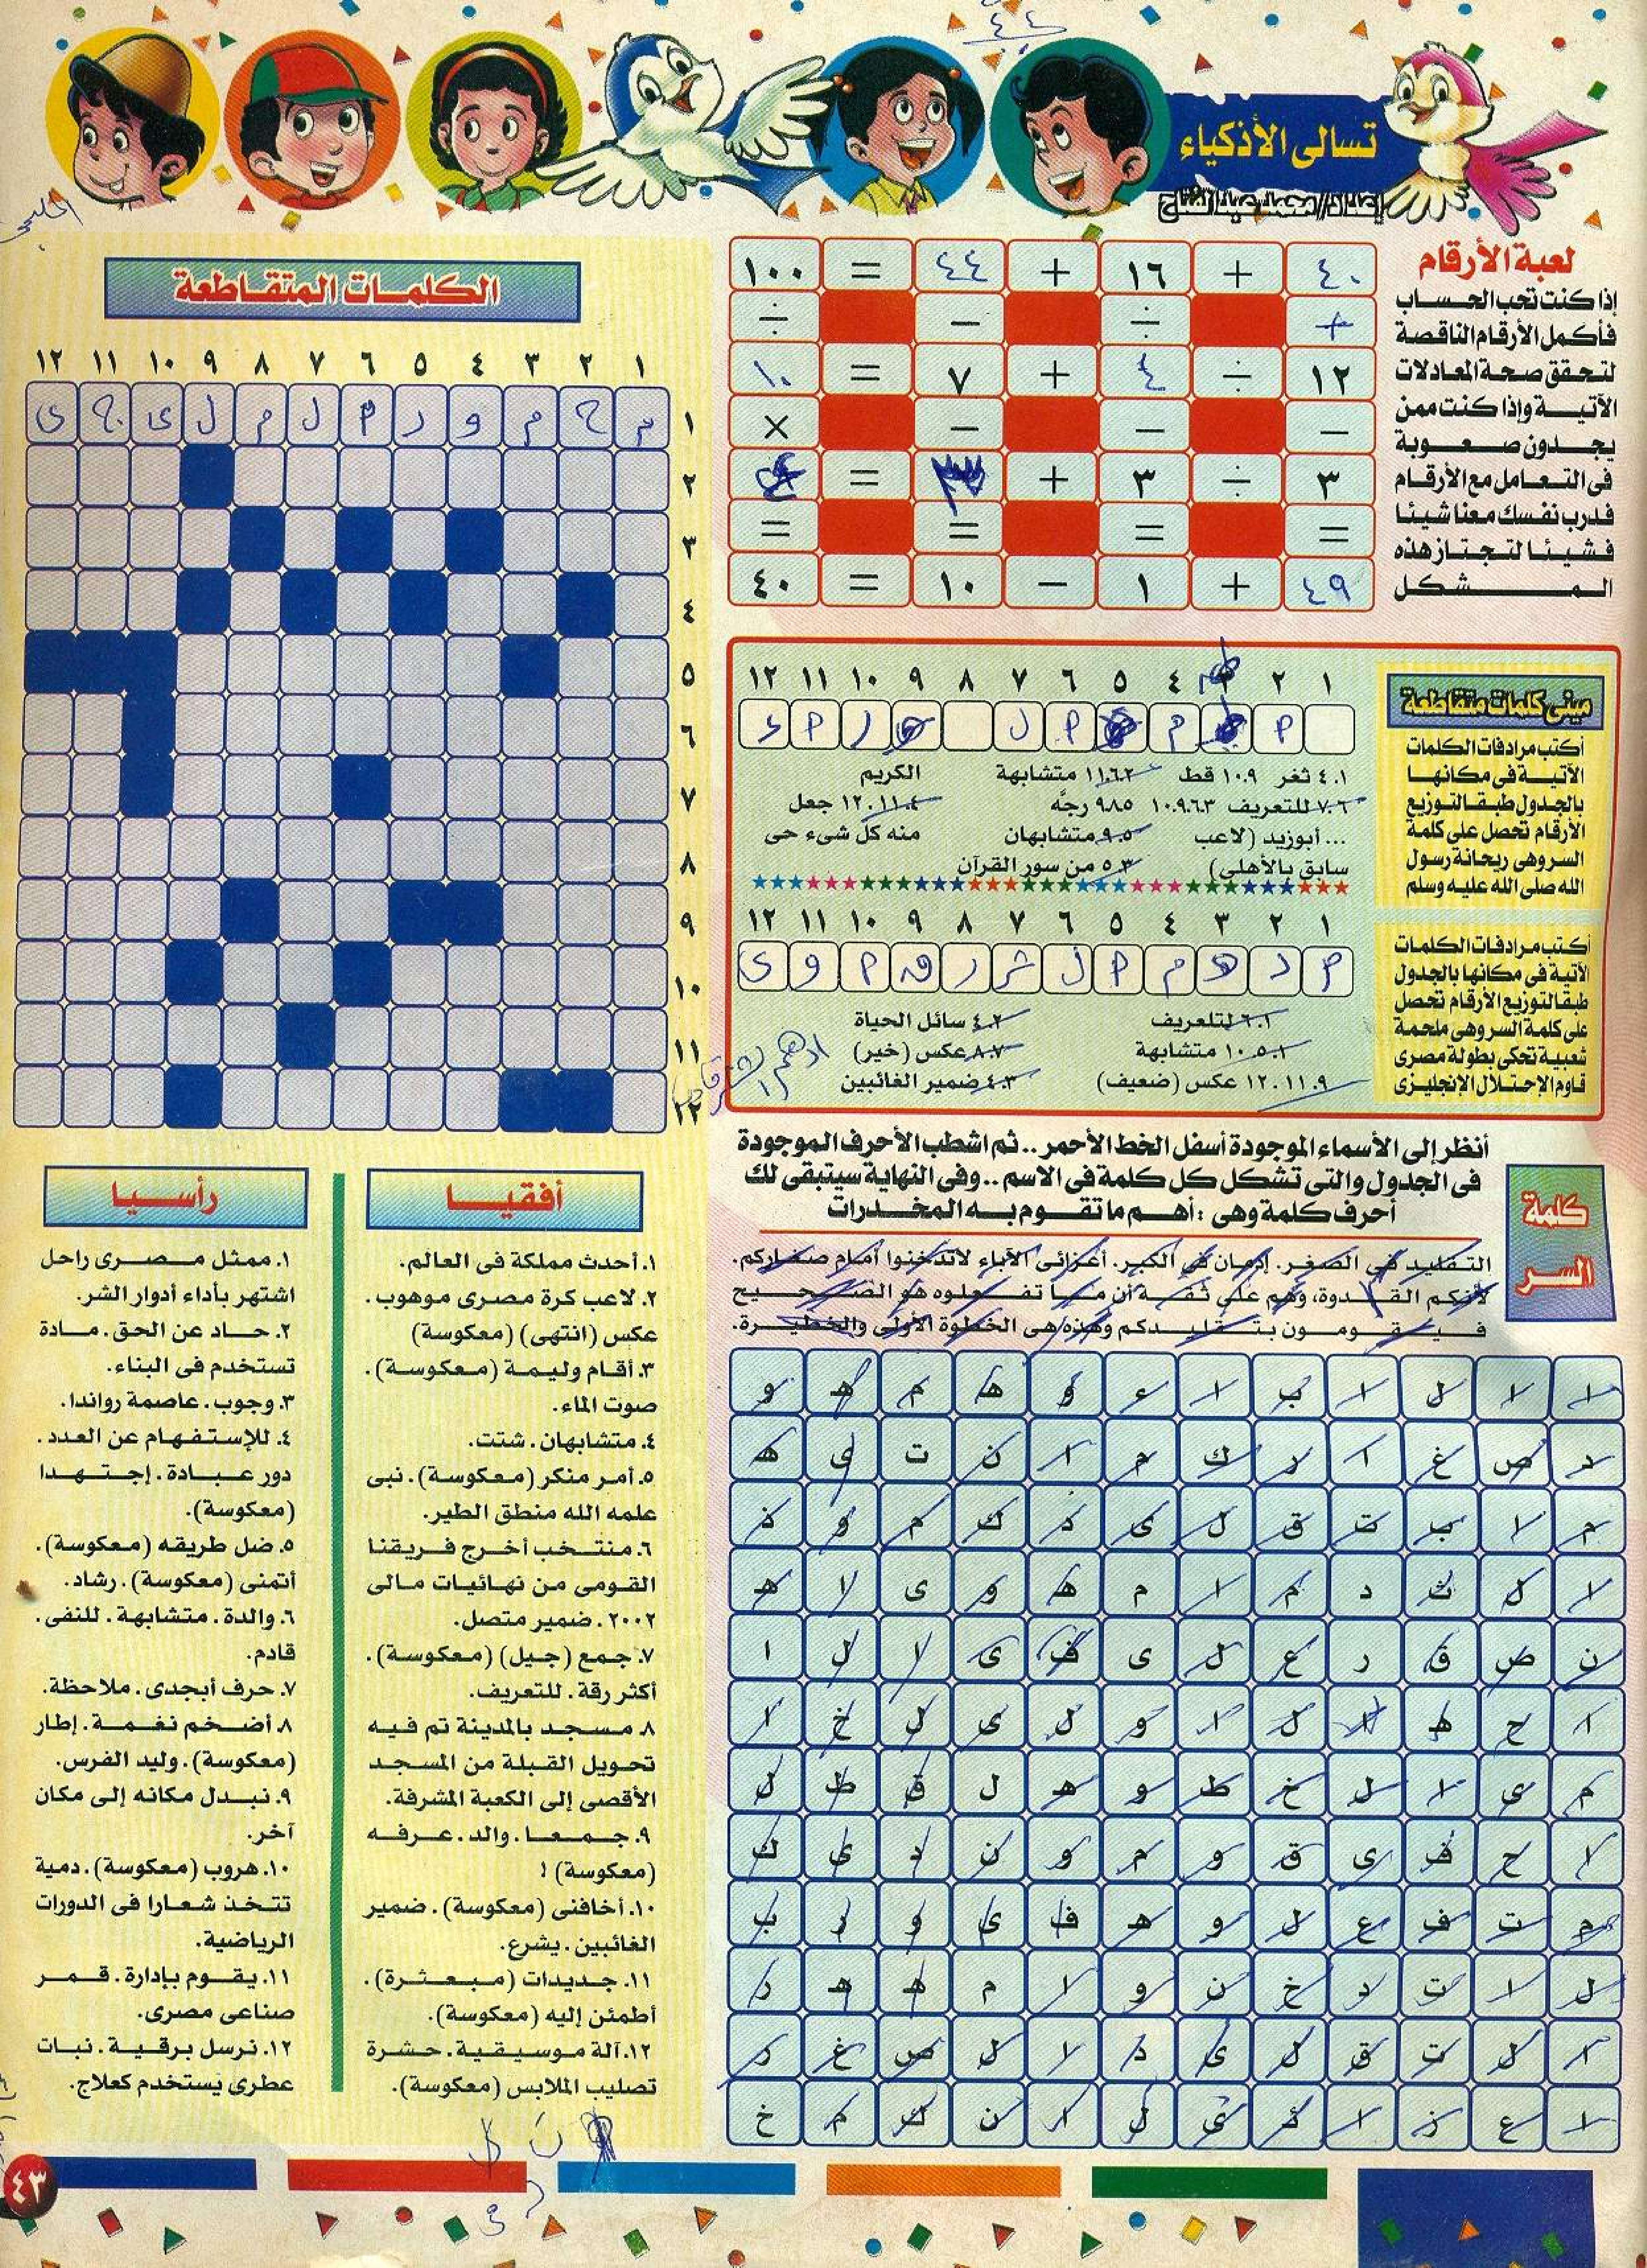 تسالى الأذكياء
لعبة الأرقام
إذا كنت تحب الحساب
فأكمل الأرقام الناقصة
لتحقق صحة المعادلات
الآتية وإذا كنت ممن
يجدون صعوبة
فى التعامل مع الأرقام
فدرب نفسك معنا شيئا
فشيئا لتجتاز هذه
المشكل
٤٠ + ١٦ + ٤٤ = ١٠٠
+ ÷ − ÷
١٢ ÷ ٤ + ٧ = ١٠
− − − ×
٣ ÷ ٣ + ٣ = ٤
= = = =
٤٩ + ١ − ١٠ = ٤٠
مينى كلمات متقاطعة
أكتب مرادفات الكلمات
الآتية فى مكانها
بالجدول طبقا لتوزيع
الأرقام تحصل على كلمة
السر وهى ريحانة رسول
الله صلى الله عليه وسلم
١ ٢ ٣ ٤ ٥ ٦ ٧ ٨ ٩ ١٠ ١١ ١٢
٤.١ ثغر ١٠.٩ قط ١١.٦.٢ متشابهة
٧.٦ للتعريف ١٠.٩.٦.٣
... أبوزيد (لاعب
سابق بالأهلى)
٩.٨.٥ رجّه
٩.٥ متشابهان
٥.٣ من سور القرآن
الكريم
١٢.١١.٤ جعل
منه كل شىء حى
أكتب مرادفات الكلمات
الآتية فى مكانها بالجدول
طبقا لتوزيع الأرقام تحصل
على كلمة السر وهى ملحمة
شعبية تحكى بطولة مصرى
قاوم الإحتلال الإنجليزى
١ ٢ ٣ ٤ ٥ ٦ ٧ ٨ ٩ ١٠ ١١ ١٢
ا د هـ م ا ل ش ر ق ا و ى
٦.١ لتلعريف
١٠.٥.١ متشابهة
١٢.١١.٩ عكس (ضعيف)
٤.٢ سائل الحياة
٨.٧ عكس (خير)
٤.٣ ضمير الغائبين
ادهم الشرقاوى
كلمة
السر
أنظر إلى الأسماء الموجودة أسفل الخط الأحمر.. ثم اشطب الأحرف الموجودة
فى الجدول والتى تشكل كل كلمة فى الاسم .. وفى النهاية سيتبقى لك
أحرف كلمة وهى : أهم ما تقوم به المخدرات
التقليد فى الصغر. إدمان فى الكبر. أعزائى الآباء لاتدخنوا أمام صغاركم.
لأنكم القدوة، وهم على ثقة أن ما تفعلوه هو الصحيح
فيقومون بتقليدكم وهذه هى الخطوة الأولى والخطيرة.
ا لا ل ا ب ا ء و هـ م هـ و
د ص غ ا ر ك م ا ن ت ى هـ
م لا ب ت ق ل ى د ك م و ذ
ا ل ث د م ا م هـ و ى لا هـ
ن ص ق ر ع ل ى ف ى ا ل ا
ا ح هـ ا ل ا و ل ى ل خ ا
م ى ا ل خ ط و هـ ل ق ط ل
ا ح ف ى ق و م و ن د ى ك
م ت ف ع ل و هـ ف ى و ر ب
ل ا ت د خ ن و ا م هـ هـ ر
ا ل ت ق ل ى د ا ل ص غ ر
ا ع ز ا ئ ى ل ا ن ك م خ
الكلمات المتقاطعة
١ ٢ ٣ ٤ ٥ ٦ ٧ ٨ ٩ ١٠ ١١ ١٢
١ م ح م و د ا ل م ل ي ج ى
٢
٣
٤
٥
٦
٧
٨
٩
١٠
١١
١٢
أفقيا
١. أحدث مملكة فى العالم.
٢. لاعب كرة مصرى موهوب.
عكس (انتهى) (معكوسة)
٣. أقام وليمة (معكوسة).
صوت الماء.
٤. متشابهان. شتت.
٥. أمر منكر (معكوسة). نبى
علمه الله منطق الطير.
٦. منتخب أخرج فريقنا
القومى من نهائيات مالى
٢٠٠٢. ضمير متصل.
٧. جمع (جيل) (معكوسة).
أكثر رقة. للتعريف.
٨. مسجد بالمدينة تم فيه
تحويل القبلة من المسجد
الأقصى إلى الكعبة المشرفة.
٩. جمعا. والد. عرفه
(معكوسة) !
١٠. أخافنى (معكوسة). ضمير
الغائبين. يشرع.
١١. جديدات (مبعثرة).
أطمئن إليه (معكوسة).
١٢. آلة موسيقية. حشرة
تصليب الملابس (معكوسة).
رأسيا
١. ممثل مصرى راحل
اشتهر بأداء أدوار الشر.
٢. حاد عن الحق. مادة
تستخدم فى البناء.
٣. وجوب. عاصمة رواندا.
٤. للإستفهام عن العدد.
دور عبادة. إجتهدا
(معكوسة).
٥. ضل طريقه (معكوسة).
أتمنى (معكوسة). رشاد.
٦. والدة. متشابهة. للنفى.
قادم.
٧. حرف أبجدى. ملاحظة.
٨. أضخم نغمة. إطار
(معكوسة). وليد الفرس.
٩. نبدل مكانه إلى مكان
آخر.
١٠. هروب (معكوسة). دمية
تتخذ شعارا فى الدورات
الرياضية.
١١. يقوم بإدارة. قمر
صناعى مصرى.
١٢. نرسل برقية. نبات
عطرى يستخدم كعلاج.
٤٣